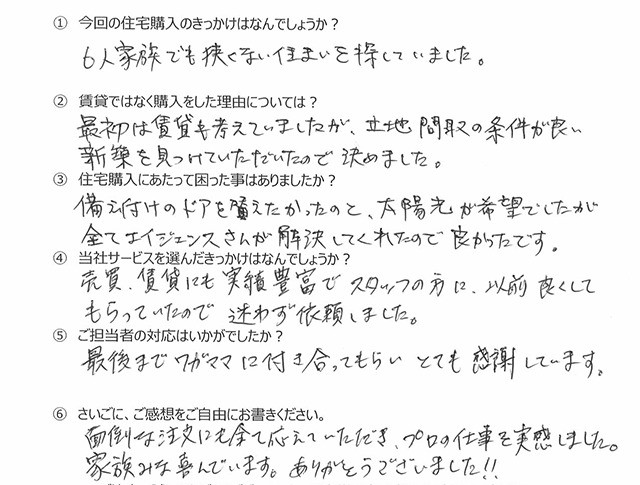 ① 今回の住宅購入のきっかけはなんでしょうか？
6人家族でも狭くない住まいを探していました。
② 賃貸ではなく購入をした理由については？
最初は賃貸も考えていましたが、立地 間取の条件が良い
新築を見つけていただいたので 決めました。
③ 住宅購入にあたって困った事はありましたか？
備え付けのドアを変えたかったのと、太陽光が希望でしたが
全てエイジェンスさんが解決してくれたので 良かったです。
④ 当社サービスを選んだきっかけはなんでしょうか？
売買、賃貸にも実績豊富で スタッフの方に、以前 良くして
もらっていたので 迷わず依頼しました。
⑤ ご担当者の対応はいかがでしたか？
最後まで ワガママに付き合ってもらい とても 感謝しています。
⑥ さいごに、ご感想をご自由にお書きください。
面倒な注文にも全て応えていただき、プロの仕事を実感しました。
家族みな喜んでいます。ありがとうございました!!